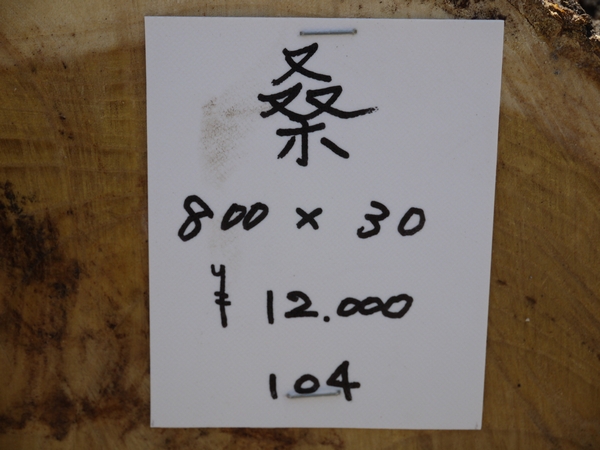 桑
800 × 30
¥ 12.000
104